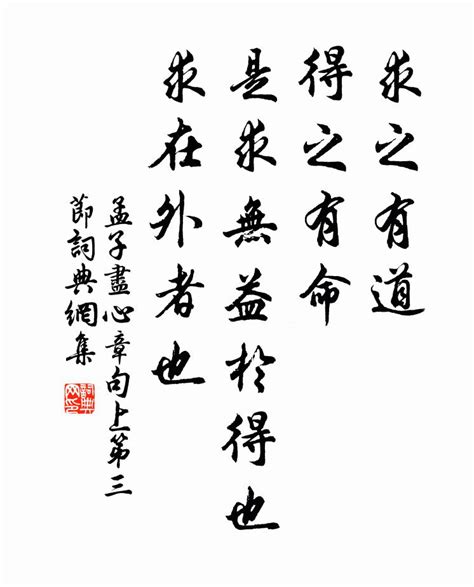 求之有道
得之有命
是求無益於得也
求在外者也
孟子盡心章句上第三
節詞典網集
詞典网